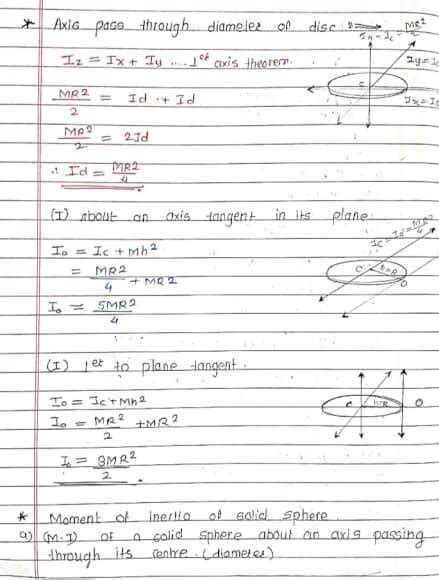 * Axis pass through diameter of disc
Iz = Ix + Iy .... 1er axis theorem.
MR²/2 = Id + Id
MR²/2 = 2Id
∴ Id = MR²/4
Iy = Ic
C
Ix = Id
(I) About an axis tangent in its plane.
Io = Ic + Mh²
= MR2/4 + MR2
Io = 5MR2/4
Ic = Id = MR²/4
C h=R
O
(I) 1er to plane tangent.
Io = Ic + Mh2
Io = MR²/2 + MR²
Io = 3MR²/2
C h=R O
* Moment of inertia of solid sphere.
a) (M.I) of a solid sphere about an axis passing
through its centre. (diameter)